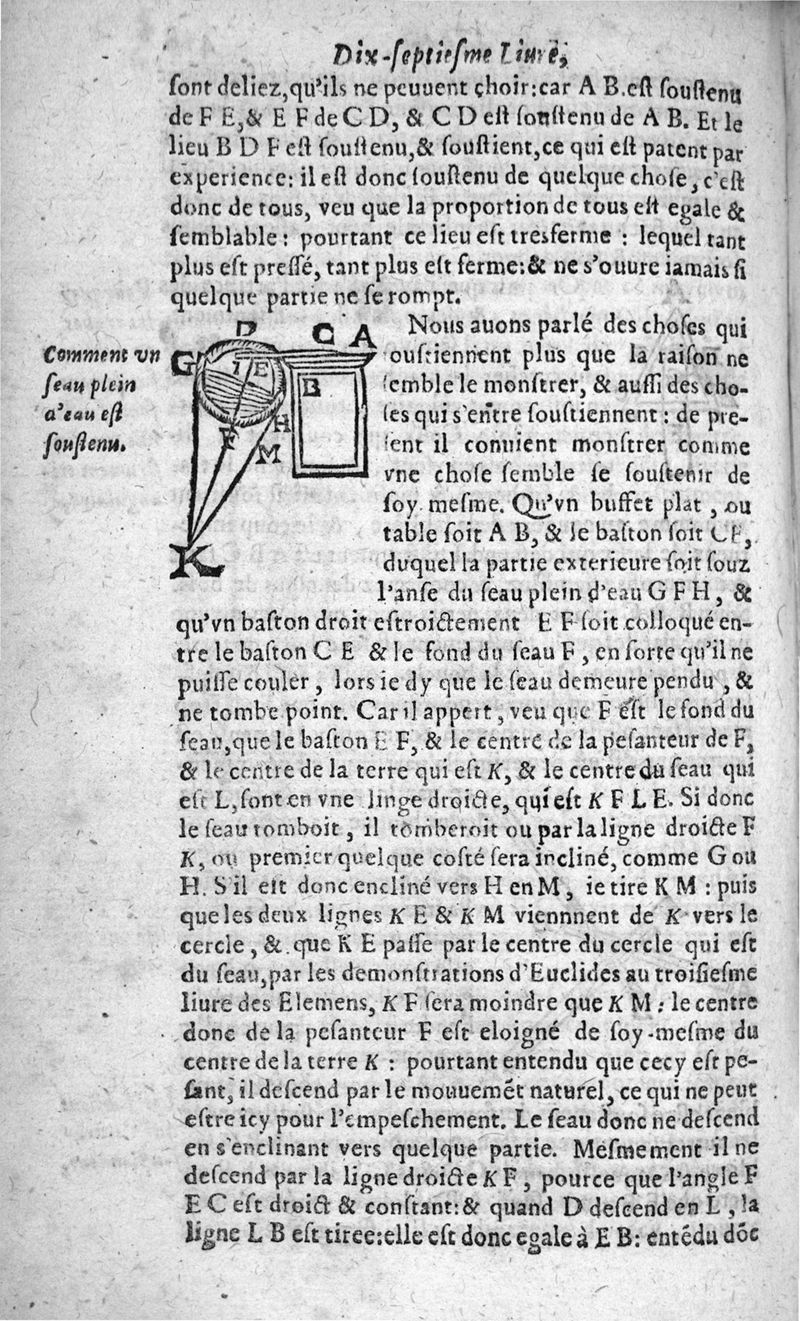 Dix-septiesme Liure,
ſont deliez,qu'ils ne peuuent choir:car A B.eſt ſouſtenu
de F E,& E F de C D, & C D eſt ſouſtenu de A B. Et le
lieu B D F eſt ſouſtenu,& ſouſtient,ce qui eſt patent par
experience: il eſt donc ſouſtenu de quelque choſe, c'eſt
donc de tous, veu que la proportion de tous eſt egale &
ſemblable: pourtant ce lieu eſt tresferme : lequel tant
plus eſt preſſé, tant plus eſt ferme:& ne s'ouure iamais ſi
quelque partie ne ſe rompt.
Nous auons parlé des choſes qui
ouſtiennent plus que la raiſon ne
ſemble le monſtrer, & auſſi des cho-
ſes qui s'entre ſouſtiennent : de pre-
ſent il conuient monſtrer comme
vne choſe ſemble ſe ſouſtenir de
ſoy meſme. Qu'vn buffet plat , ou
table ſoit A B, & le baſton ſoit
duquel la partie exterieure ſoit ſouz
l'anſe du ſeau plein d'eau G F H, &
Comment vn
ſeau plein
d'eau eſt
ſouſtenu.
D
C A
G
I E
B
H
F
M
K
qu'vn baſton droit eſtroictement E F ſoit colloqué en-
tre le baſton C E & le fond du ſeau F , en ſorte qu'il ne
puiſſe couler , lors ie dy que le ſeau demeure pendu , &
ne tombe point. Car il appert , veu que F eſt le fond du
ſeau,que le baſton E F, & le centre de la peſanteur de F,
& le centre de la terre qui eſt K, & le centre du ſeau qui
eſt L,ſont en vne linge droicte, qui eſt K F L E. Si donc
le ſeau tomboit , il tomberoit ou par la ligne droicte F
K, ou premier quelque coſté ſera incliné, comme G ou
H. S'il eſt donc encliné vers H en M , ie tire K M : puis
que les deux lignes K E & K M viennnent de K vers le
cercle , & que K E paſſe par le centre du cercle qui eſt
du ſeau,par les demonſtrations d'Euclides au troiſieſme
liure des Elemens, K F ſera moindre que K M : le centre
donc de la peſanteur F eſt eloigné de ſoy-meſme du
centre de la terre K : pourtant entendu que cecy eſt pe-
ſant, il deſcend par le mouuemẽt naturel, ce qui ne peut
eſtre icy pour l'empeſchement. Le ſeau donc ne deſcend
en s'enclinant vers quelque partie. Meſmement il ne
deſcend par la ligne droicte K F , pource que l'angle F
E C eſt droict & conſtant:& quand D deſcend en L , la
ligne L B eſt tiree:elle eſt donc egale à E B: entẽdu dõc